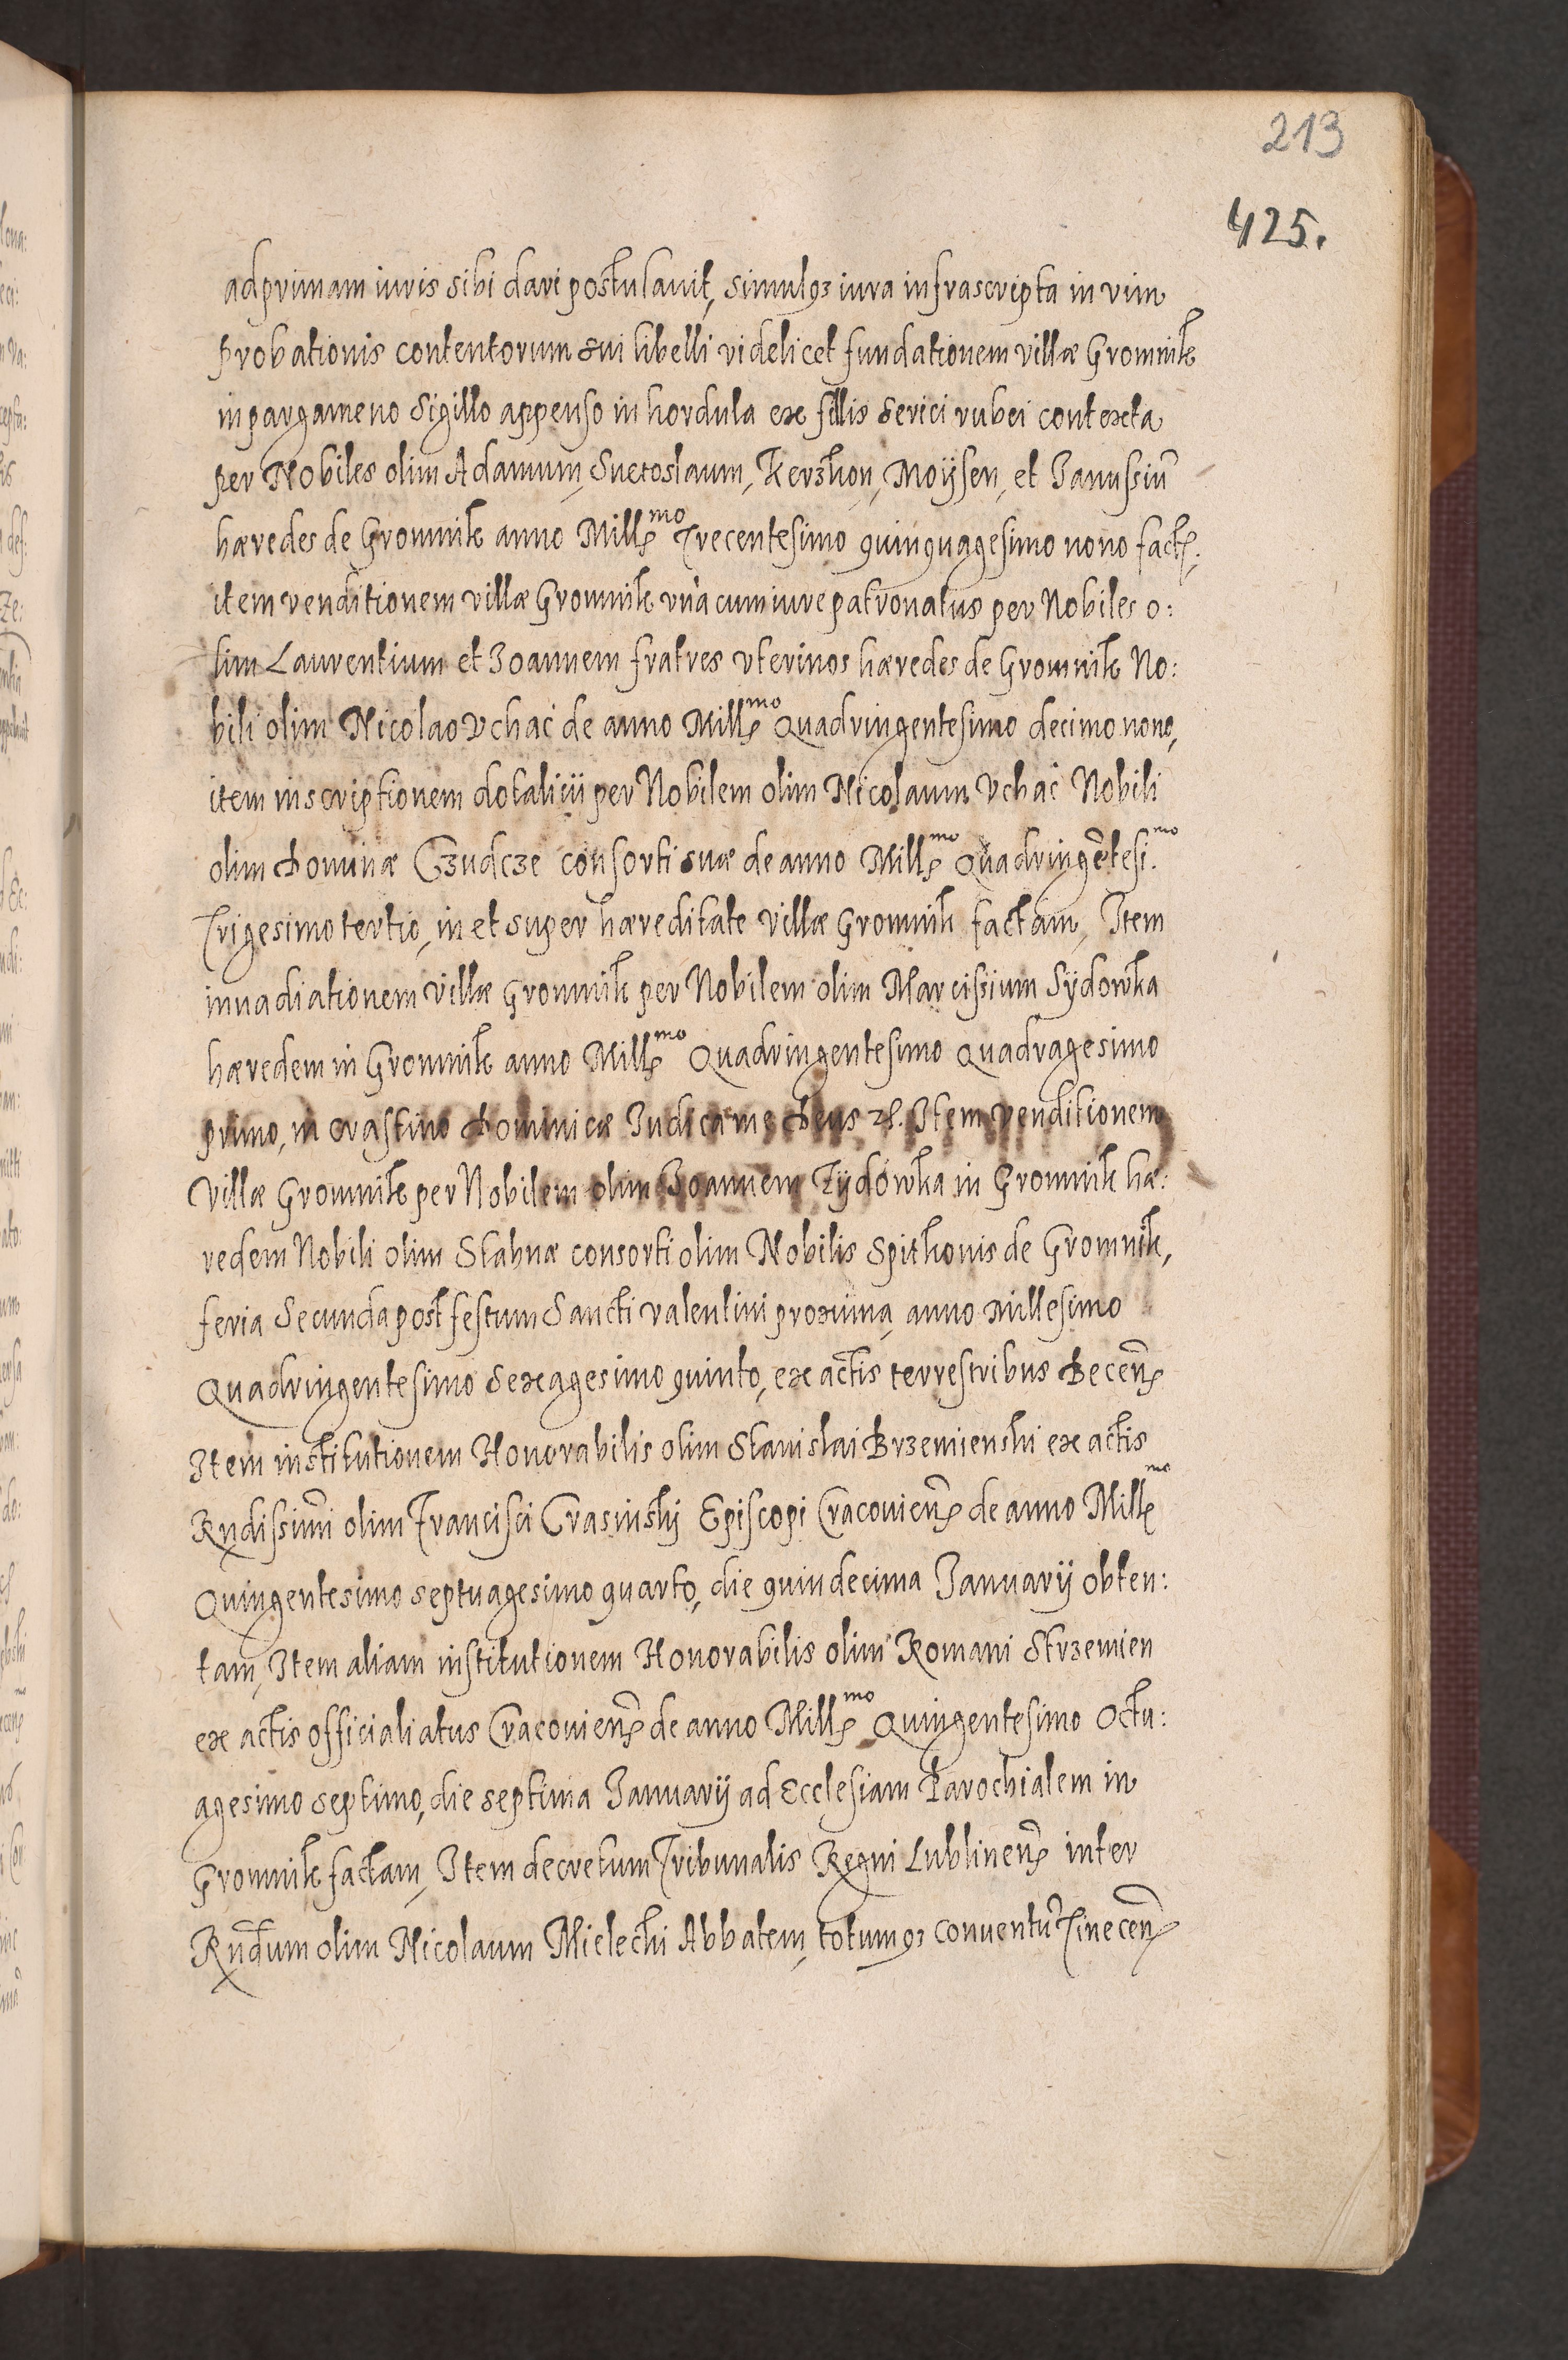 213
425.
ad primam iuris sibi dari postulavit, simulq3 iura infrascripta in vim
probationis contentorum sui libelli videlicet fundationem villæ Gromnik
in pargameno sigillo appenso in hordula ex fillis serici rubei contexta
per Nobiles olim Adamum, Suetoslaum, Kerzkon, Moÿsen, et Janussiū
hæredes de Gromnik anno Mill͠mo Trecentesimo quinquagesimo nono fact͠.
item venditionem villæ Gromnik vna cum iure patronatus per Nobiles o:
lim Laurentium et Joannem fratres vterinos hæredes de Gromnik No:
bili olim Nicolao Vchać de anno Mill͠mo Quadringentesimo decimo nono,
item inscriptionem dotalicii per Nobilem olim Nicolaum Vchać Nobili
olim Dominæ Czudcze consorti suæ de anno Mill͠mo Quadringētesi.mo
Trigesimo tertio, in et super hæreditate villæ Gromnik factam, Item
inuadiationem villæ Gromnik per Nobilem olim Marcissium Sÿdowka
hæredem in Gromnik anno Mill͠mo Quadringentesimo Quadragesimo
primo, in crastino Dominicæ Judica me Deus etc. Item venditionem
villæ Gromnik per Nobilem olim Joannem Zÿdowka in Gromnik hæ:
redem Nobili olim Stahnæ consorti olim Nobilis Spithonis de Gromnik,
feria secunda post festum Sancti Valentini proxima, anno millesimo
Quadringentesimo sexagesimo quinto, ex actis terrestribus Becen͠
Item institutionem Honorabilis olim Stanislai Brzemienski ex actis
Rndissimi olim Francisci Crasinskj Episcopi Cracovien͠ de anno Mill͠mo
Quingentesimo septuagesimo quarto, die quindecima Januarij obten:
tam, Item aliam institutionem Honorabilis olim Romani Strzemien
ex actis officialiatus Cracovien͠ de anno Mill͠mo Quingentesimo Octu:
agesimo septimo, die septima Januarij ad Ecclesiam Parochialem in
Gromnik factam, Item decretum Tribunalis Regni Lublinen͠ inter
Rndum olim Nicolaum Mielecki Abbatem, totumq3 conuentū Tinecen͠